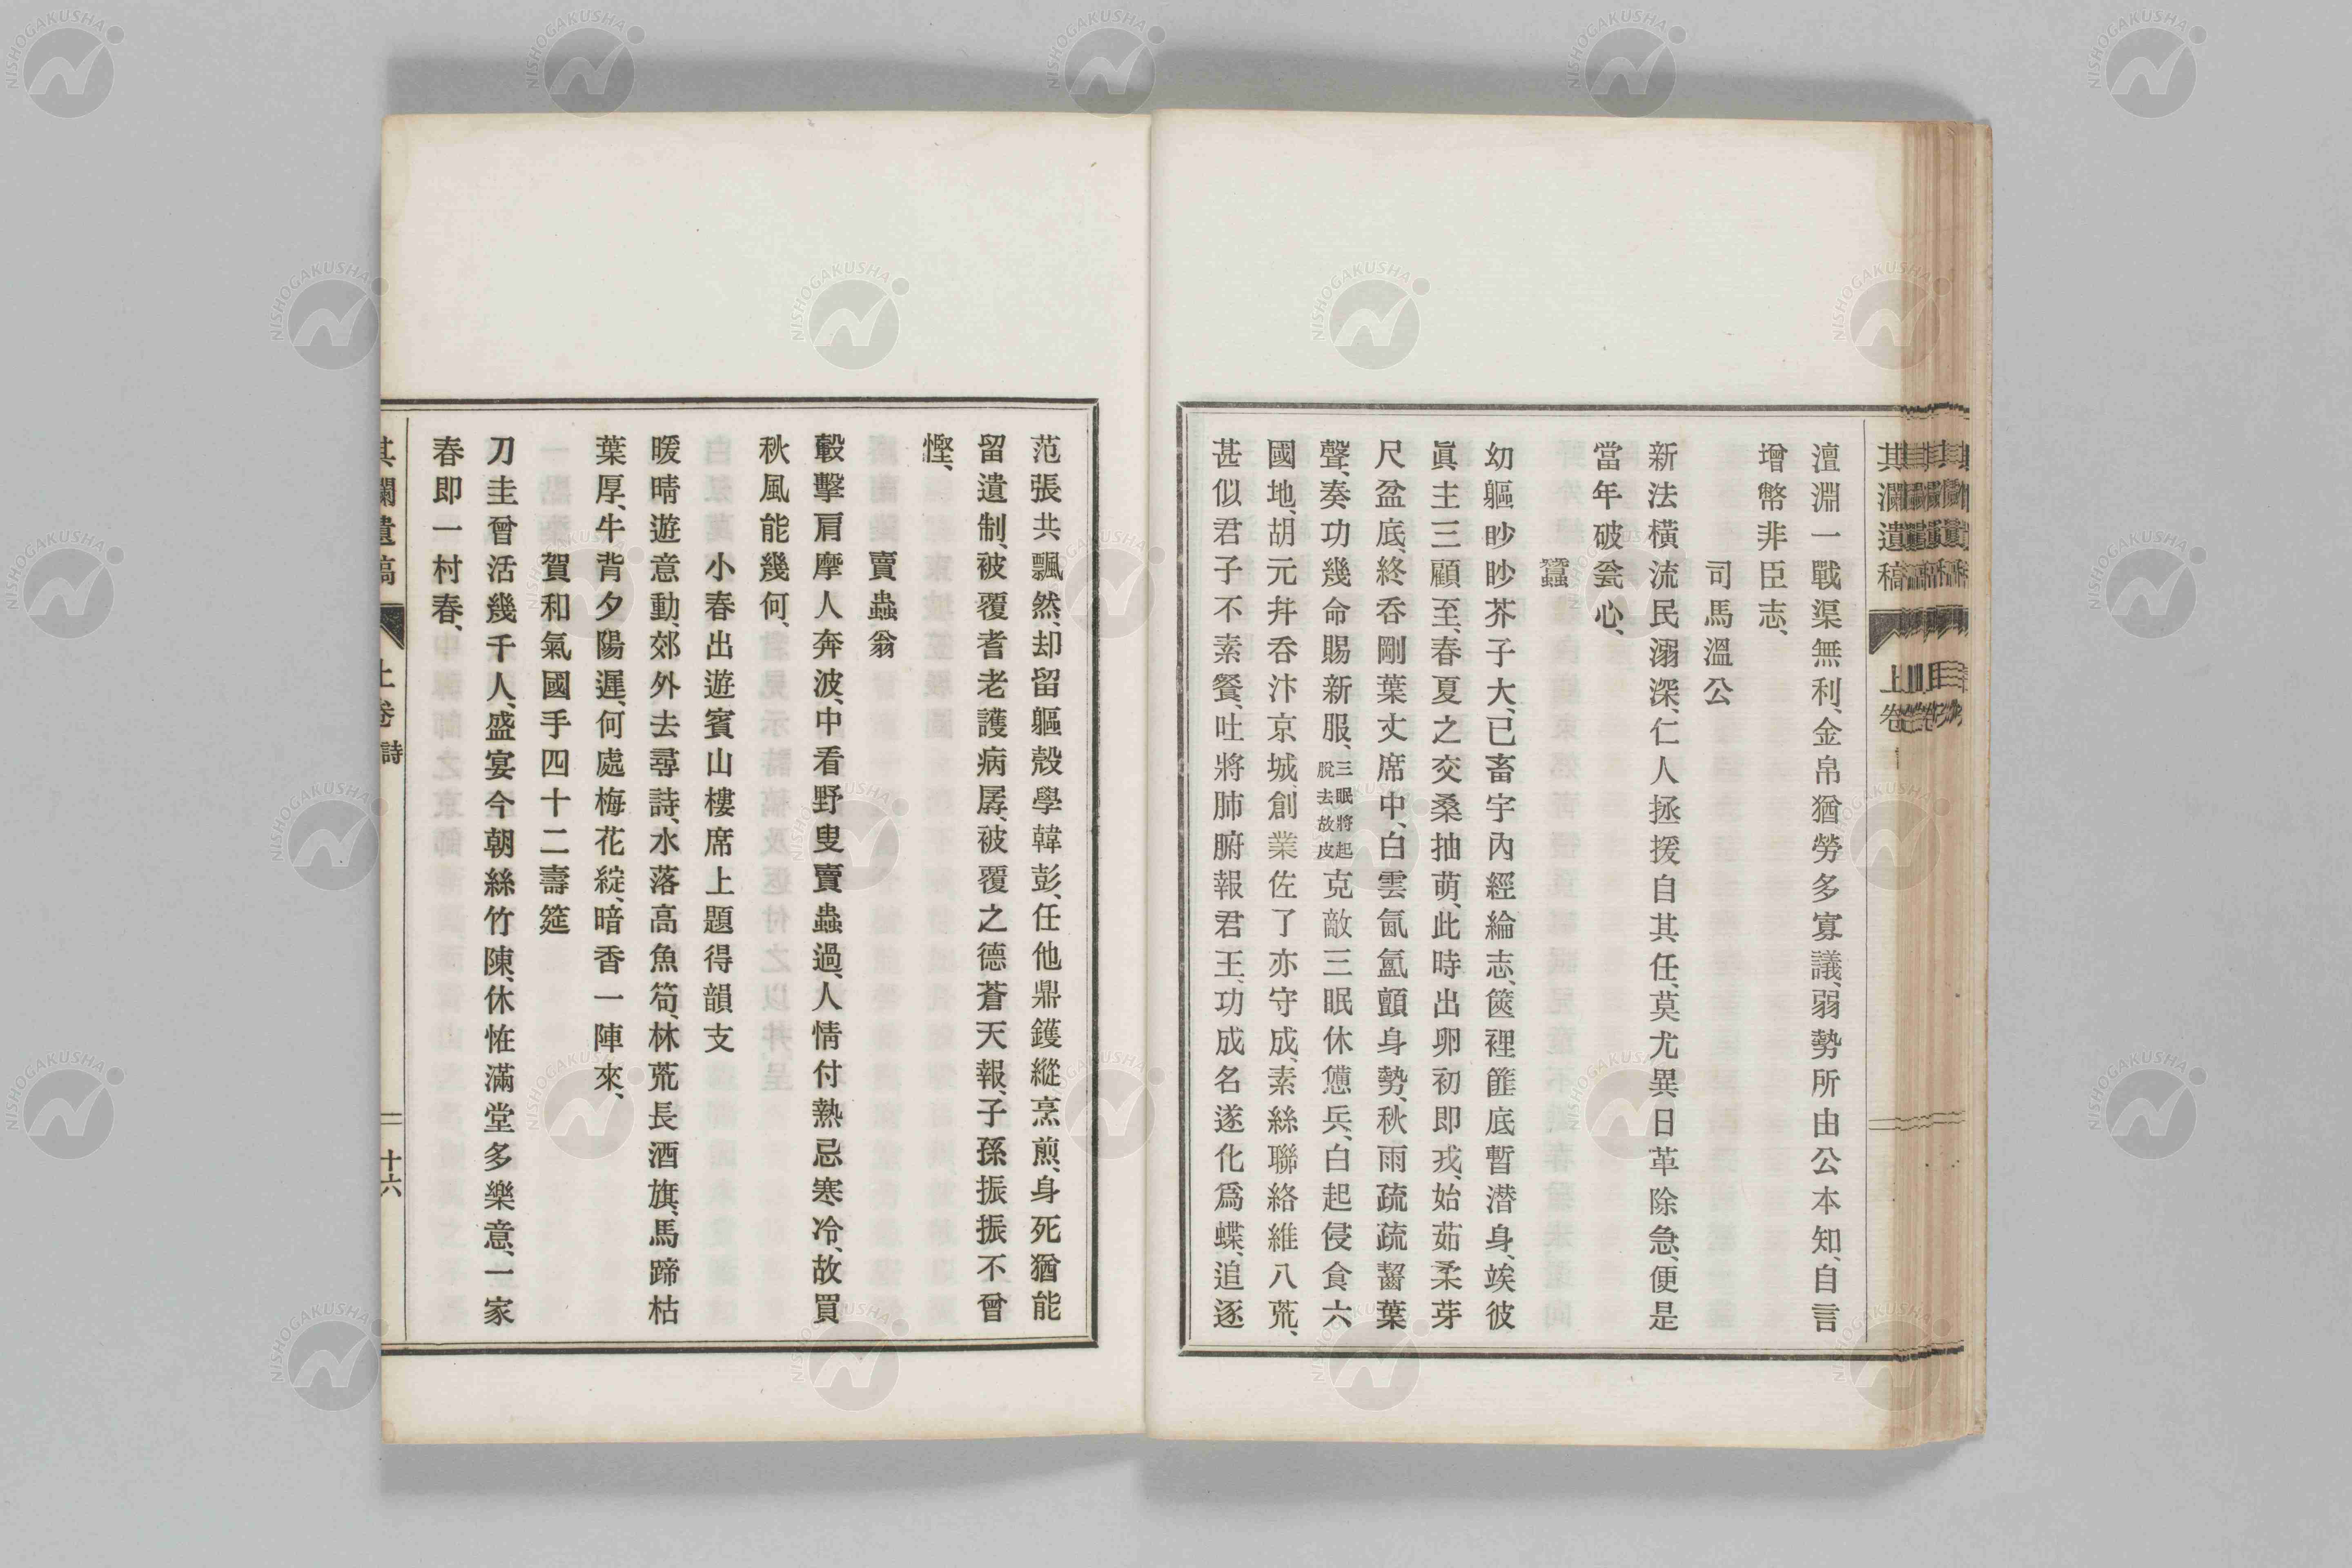 其瀾遺稿 上卷
澶淵一戰渠無利、金帛猶勞多寡議、弱勢所由公本知、自言
增幣非臣志、
司馬溫公
新法橫流民溺深、仁人拯援自其任、莫尤異日革除急、便是
當年破瓮心、
蠶
幼軀眇眇芥子大、已畜宇內經綸志、篋裡篚底暫潛身、竢彼
眞主三顧至、春夏之交桑抽萌、此時出卵初即戎、始茹柔芽
尺盆底、終呑剛葉丈席中、白雲氤氳顫身勢、秋雨疏疏齧葉
聲、奏功幾命賜新服、三眠將起脫去故皮克敵三眠休憊兵、白起侵食六
國地、胡元幷呑汴京城、創業佐了亦守成、素絲聯絡維八荒、
甚似君子不素餐、吐將肺腑報君王、功成名遂化爲蝶、追逐
范張共飄然、却留軀殼學韓彭、任他鼎鑊縱烹煎、身死猶能
留遺制、被覆耆老護病孱、被覆之德蒼天報、子孫振振不曾
慳、
賣蟲翁
轂擊肩摩人奔波、中看野叟賣蟲過、人情付熱忌寒冷、故買
秋風能幾何、
小春出遊賓山樓席上題得韻支
暖晴遊意動、郊外去尋詩、水落高魚笱、林荒長酒旗、馬蹄枯
葉厚、牛背夕陽遲、何處梅花綻、暗香一陣來、
賀和氣國手四十二壽筵
刀圭曾活幾千人、盛宴今朝絲竹陳、休恠滿堂多樂意、一家
春即一村春、
其瀾遺稿 上卷 詩 十六
NISHOGAKUSHA